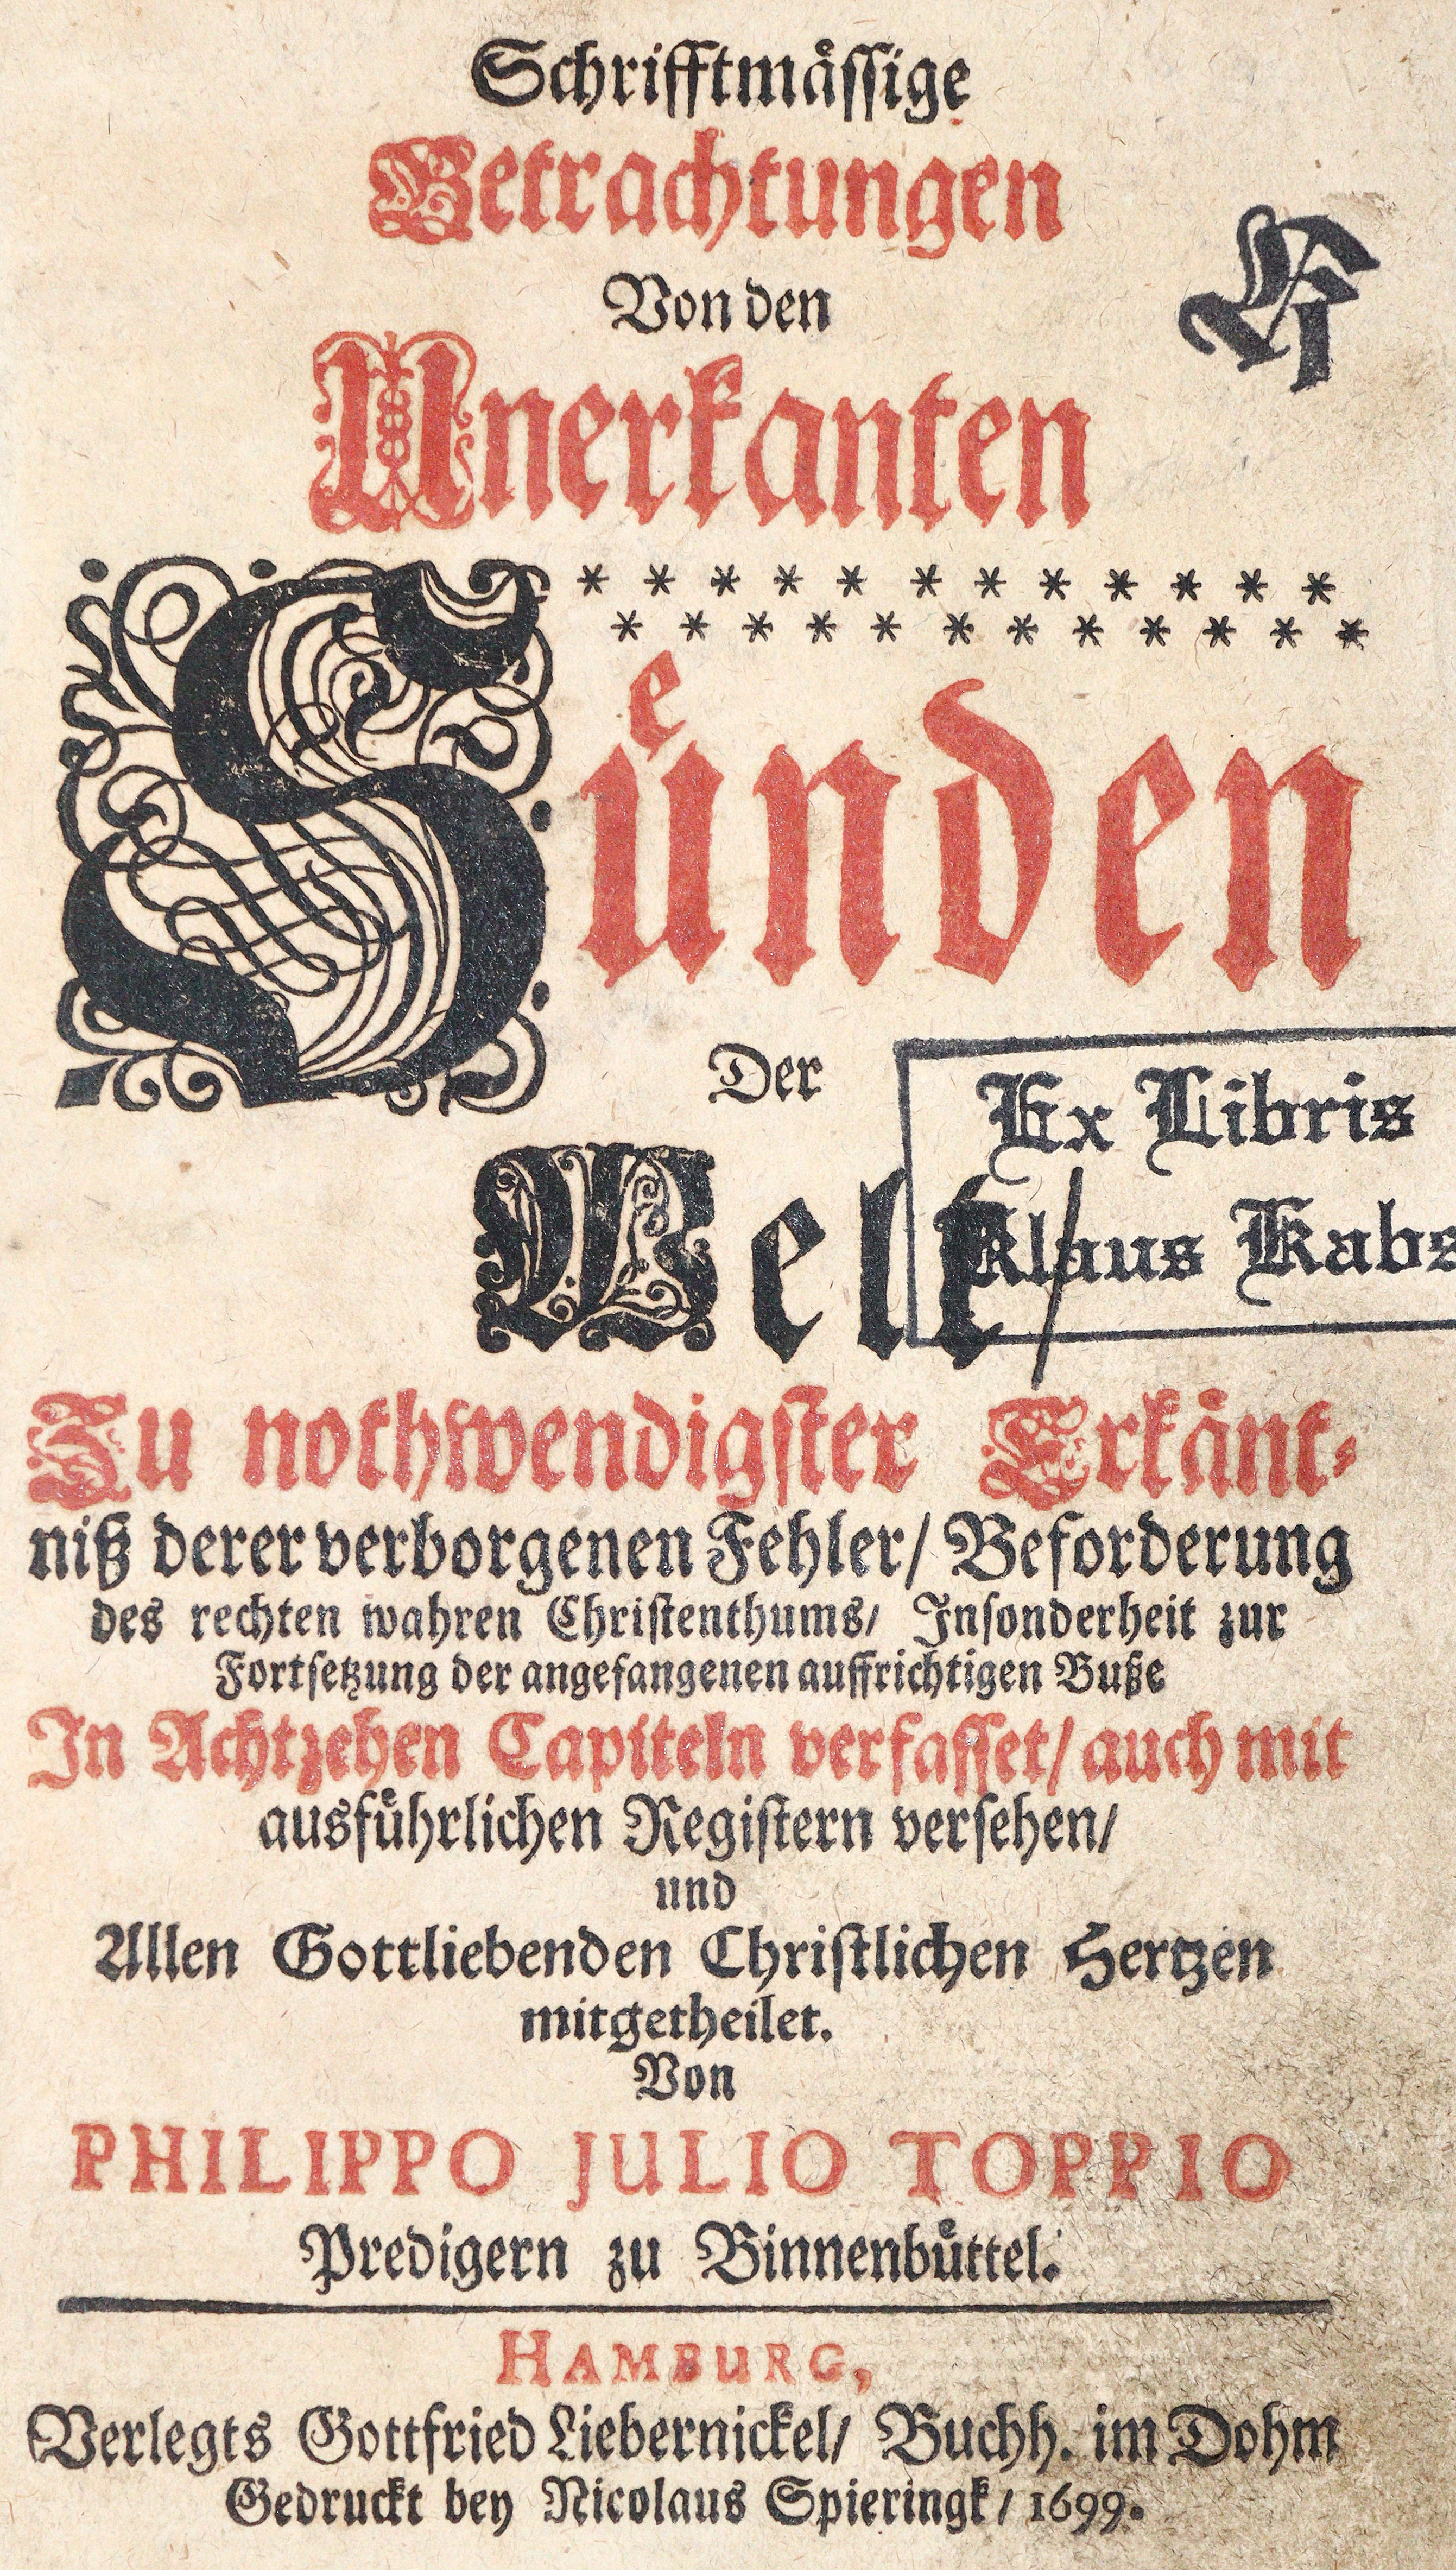 Schrifftmåssige
Betrachtungen
Von den
Unerkanten
Sůnden
Der
Welt/
Ex Libris
Klaus Kabs
Zu nothwendigster Erkånt-
niß derer verborgenen Fehler/ Beforderung
des rechten wahren Christenthums/ Insonderheit zur
Fortsetzung der angefangenen auffrichtigen Buße
In Achtzehen Capiteln verfasset/ auch mit
ausfůhrlichen Registern versehen/
und
Allen Gottliebenden Christlichen Hertzen
mitgetheilet.
Von
PHILIPPO JULIO TOPPIO
Predigern zu Binnenbůttel.
HAMBURG,
Verlegts Gottfried Liebernickel/ Buchh. im Dohm
Gedruckt bey Nicolaus Spieringk/ 1699.